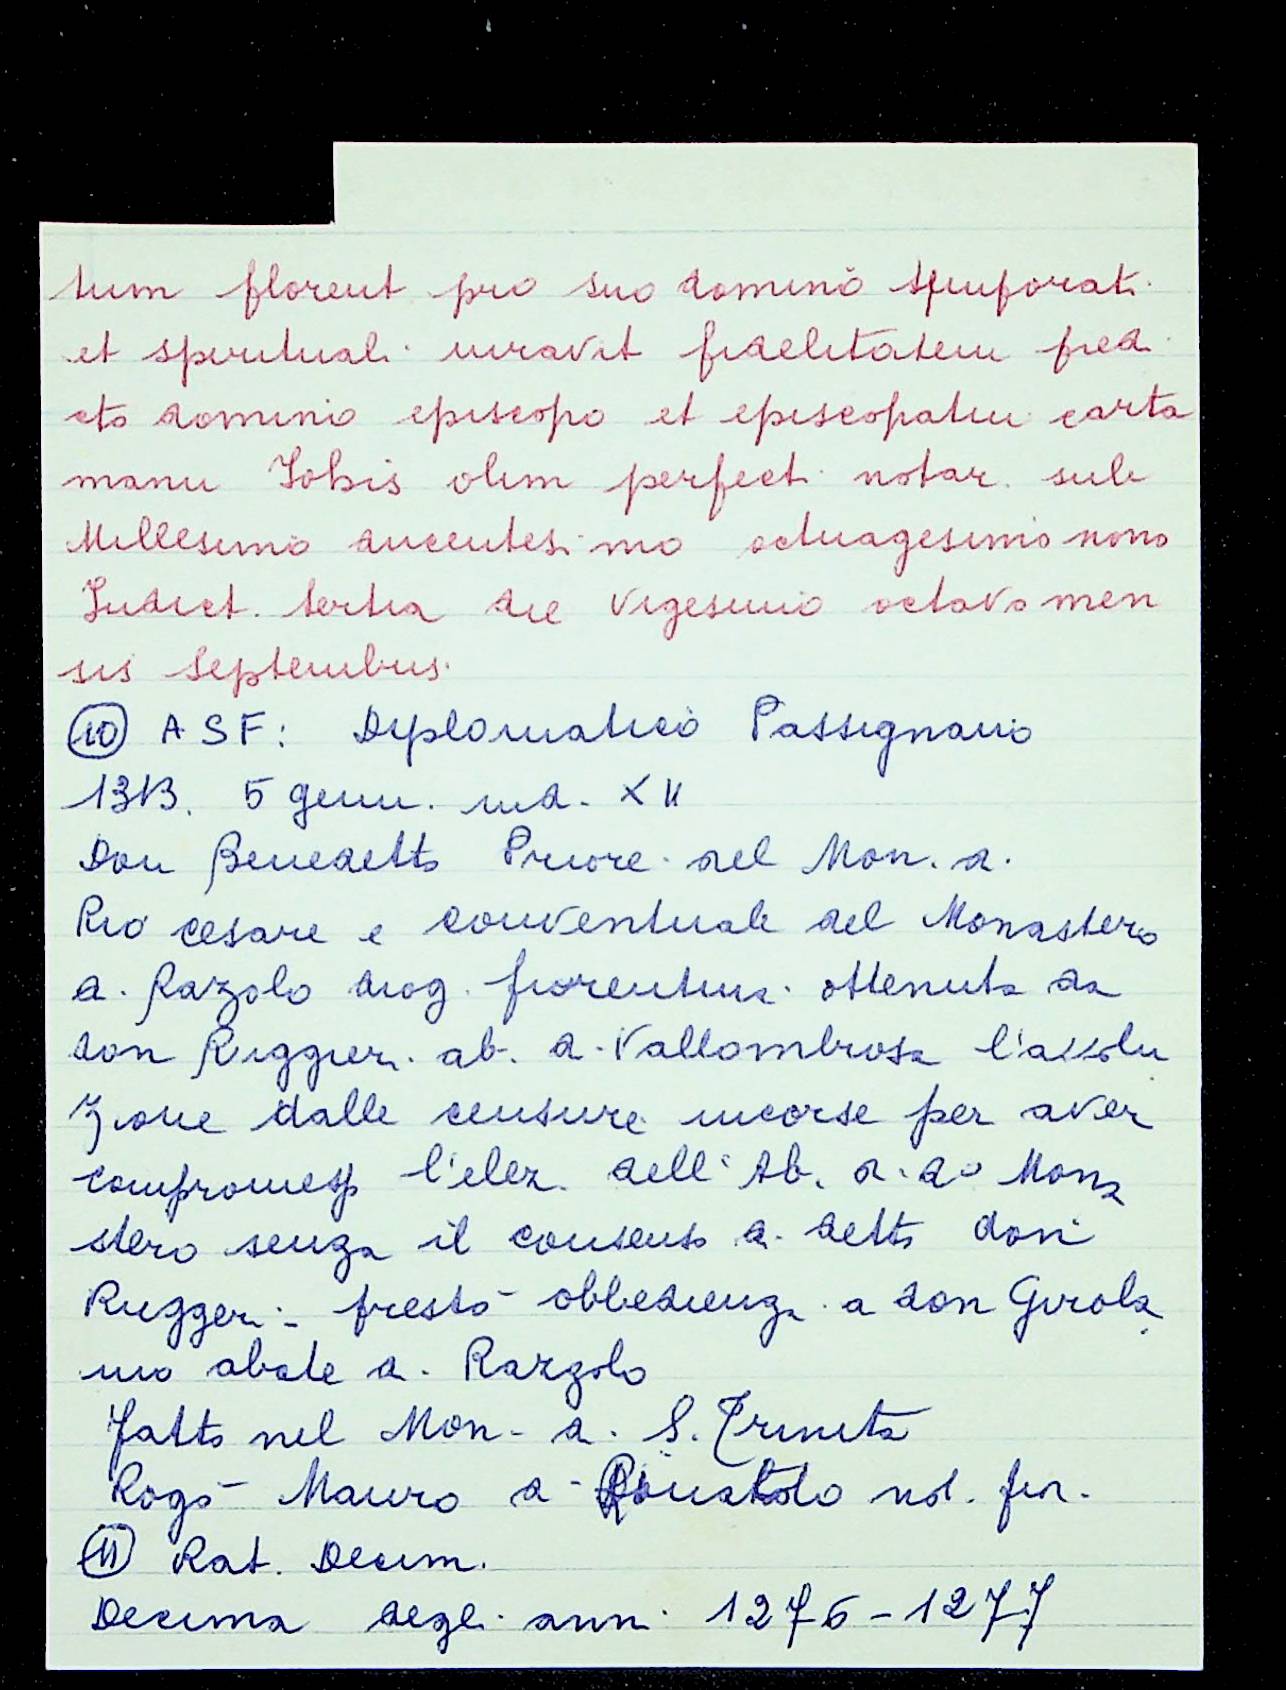 tum florent pro suo domino temporali
et spirituali iuravit fidelitatem predi
cto domino episcopo et episcopatui carta
manu Johis olim perfecti notar. sub
Millesimo ducentesimo octuagesimo nono
Indict. tertia die vigesimo octavo men
sis septembris.
(10) ASF: Diplomatico Passignano
1313. 5 genn. ind. XII
Don Benedetto Priore nel Mon. di
Rio Cesare e conventuale del Monastero
di Razolo diog. fiorentina ottenuta da
don Ruggieri ab. di Vallombrosa l'assolu
zione dalle censure incorse per aver
compromesso l'elez. dell'Ab. di do Mona
stero senza il consenso di detto don
Ruggeri - prestò obbedienza a don Girola
mo abate di Razzolo
Fatto nel Mon. di S. Trinita
Rogò Mauro di not. fior.
(11) Rat. Decim.
Decima degli anni 1276-1277